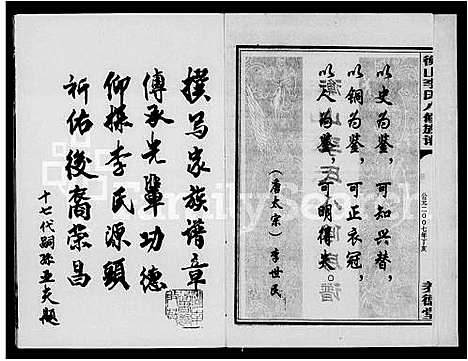 衡山李氏八修族谱
公元二〇〇七年丁亥
以史为鉴，可知兴替，
以铜为鉴，可正衣冠，
以人为鉴，可明得失。
（唐太宗）李世民
撰写家族谱章
傳承先輩功德
仰探李氏源頭
祈佑後裔荣昌
十七代嗣孫
FamilySearch